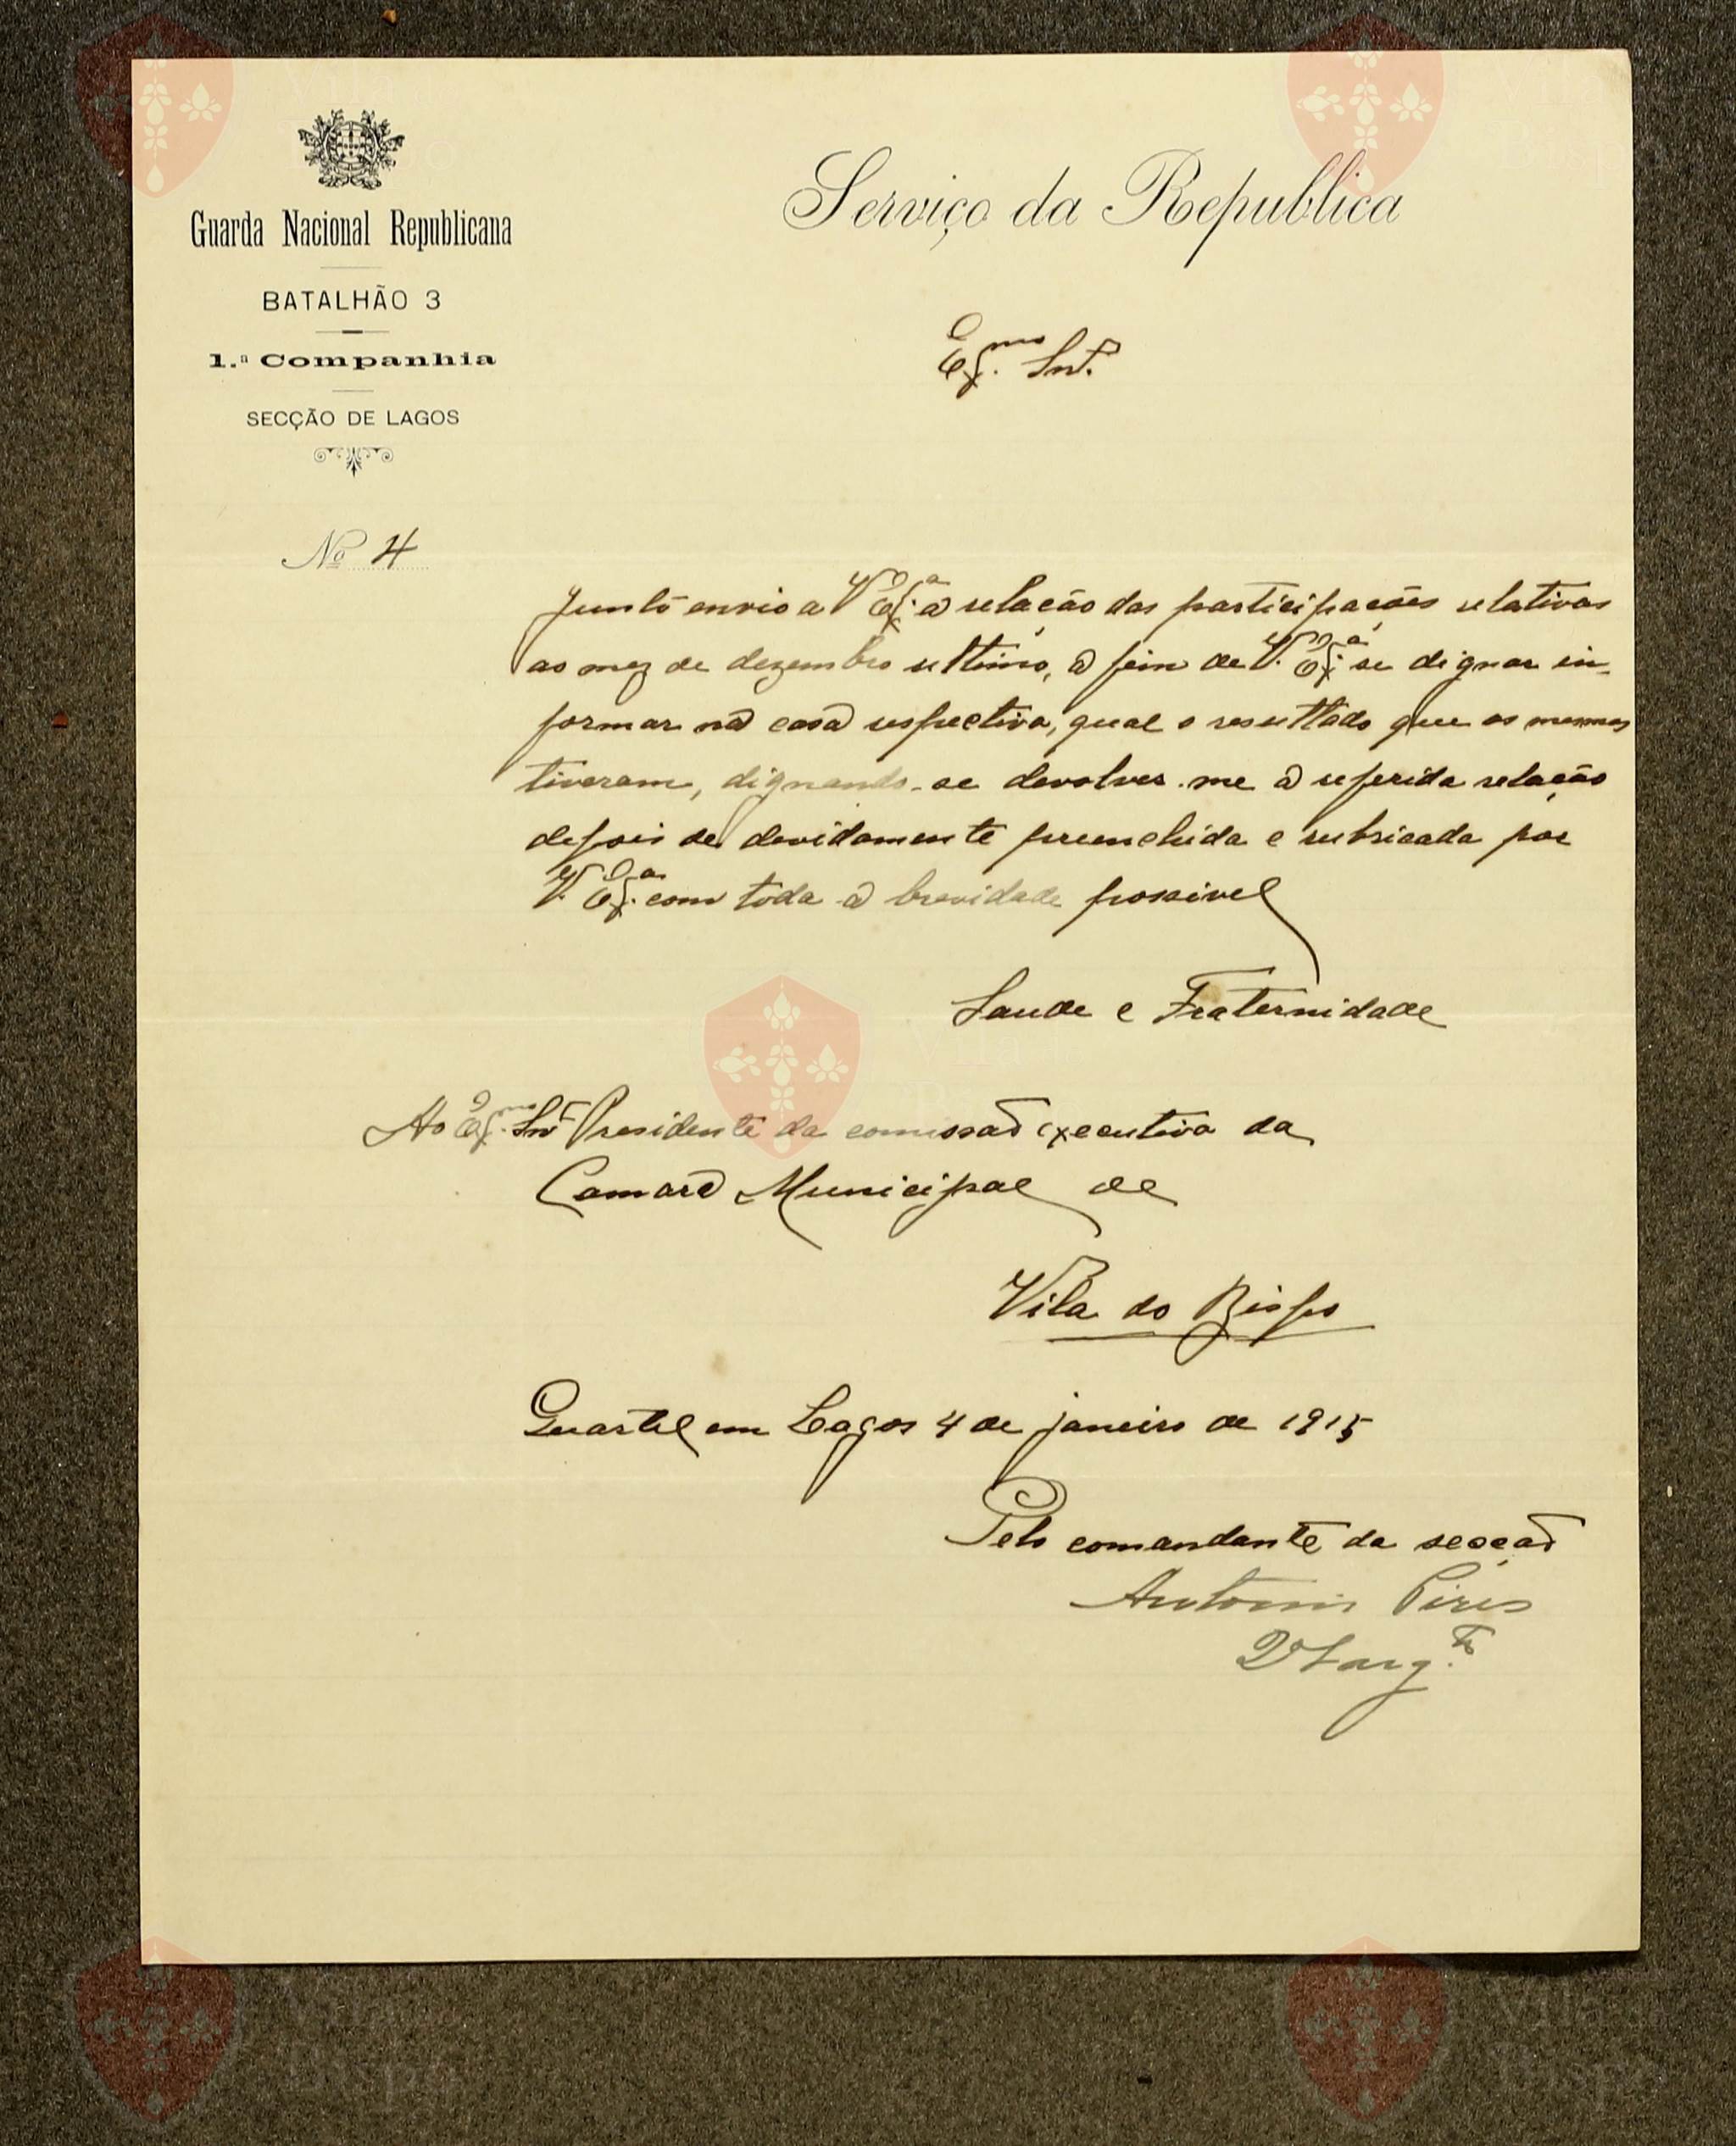 Guarda Nacional Republicana
BATALHÃO 3
1.ª Companhia
SECÇÃO DE LAGOS
Nº 4
Serviço da Republica
Exmo. Snr.
Junto envio a V. Exª. a relação das participações relativas
ao mez de dezembro ultimo, a fim de V. Exª. se dignar in-
formar na casa respectiva, qual o resultado que as mesmas
tiveram, dignando-se devolver-me a referida relação
depois de devidamente preenchida e rubricada por
V. Exª. com toda a brevidade possivel
Saude e Fraternidade
Ao Exmo. Snr Presidente da comissão executiva da
Camara Municipal de
Vila do Bispo
Quartel em Lagos 4 de janeiro de 1915
Pelo comandante da secção
Antonio Pires
2º Sarg.to
Vila do
Bispo